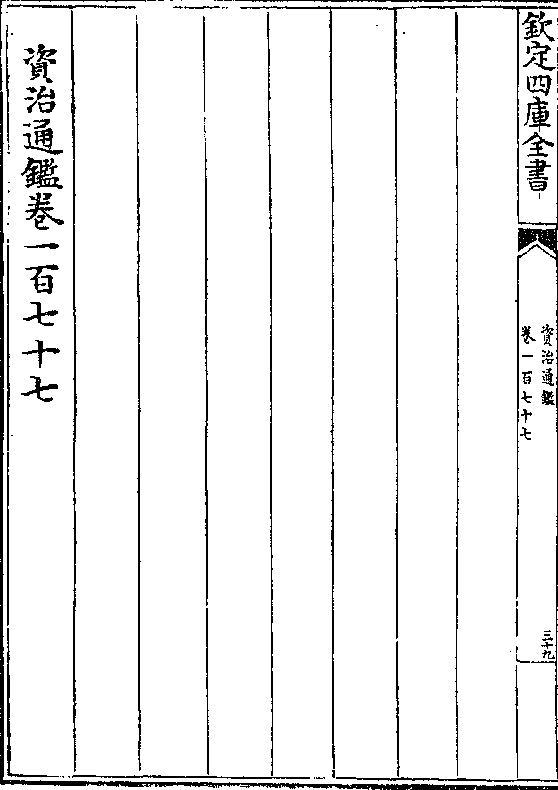 欽定四庫全書
資治通鑑
卷一百七十七
三十九
資治通鑑卷一百七十七